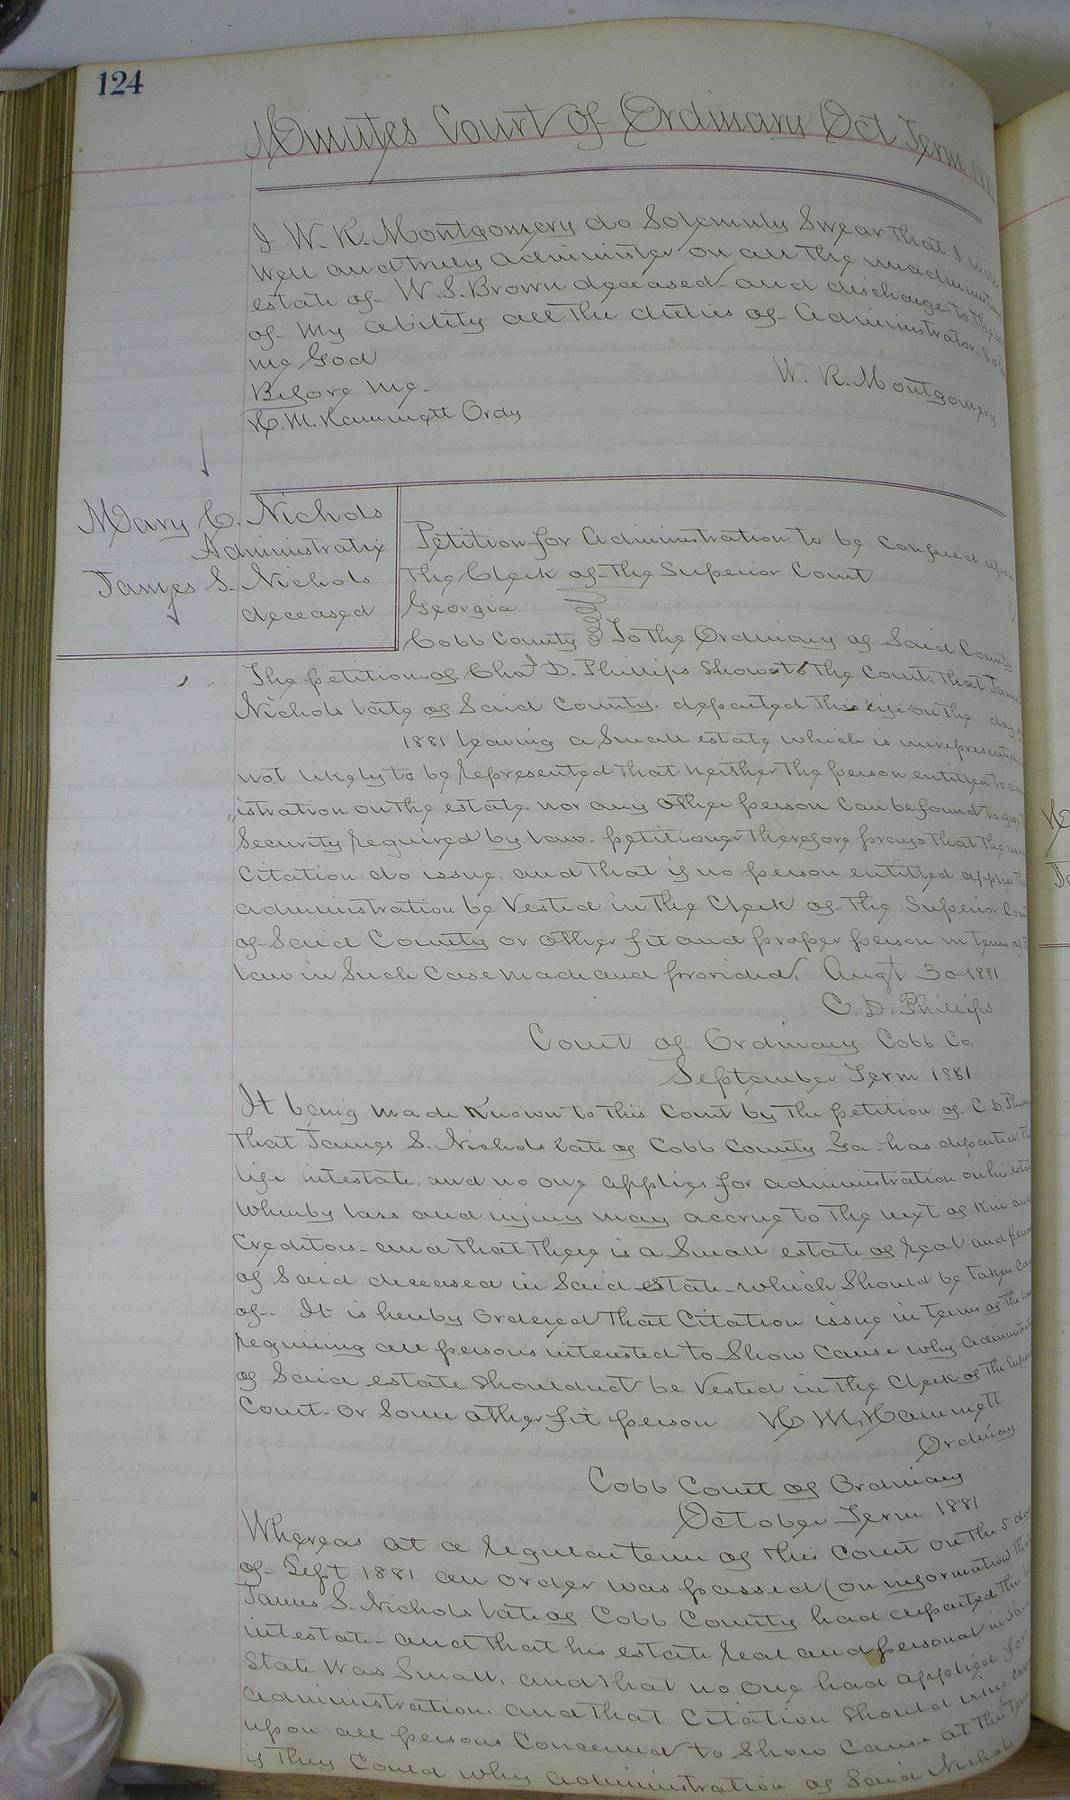 124
Minutes Court of Ordinary Oct Term 188
I W. R. Montgomery do Solemnly Swear that I will
well and truly administer on all the unadministered
estate of W. S. Brown deceased and discharge to the
of my ability all the duties of Administrator So
me God
Before me
H. M. Hammett Ordy
W. R. Montgomery
Mary C. Nichols
Administratrix
James S. Nichols
deceased
Petition for Administration to be confered upon
the Clerk of the Superior Court
Georgia
Cobb County To the Ordinary of Said County
The petition of Chas D. Phillips Shows to the Court that James
Nichols late of Said County departed this life on the day
1881 leaving a Small estate which is unrepresented
not likely to be represented that neither the person entitled to
istration on the estate nor any other person can be found to give
Security required by law. petitioner therefore prays that the usual
Citation do issue and that if no person entitled apply the
administration be Vested in the Clerk of the Superior Court
of Said County or other fit and proper person in terms of
law in Such Case made and provided. Augt 30 1881
C. D. Phillips
Court of Ordinary Cobb Co.
September Term 1881
It being made Known to this Court by the petition of C. D. Phi
that James S. Nichols late of Cobb County Ga has departed
life intestate, and no one applies for administration on his estate
whereby loss and injury may accrue to the next of Kin and
Creditors and that there is a Small estate of real and
of Said deceased in Said State which Should be taken
of. It is hereby Ordered that Citation issue in terms of the
requiring all persons interested to Show Cause why administ
of Said estate should not be Vested in the Clerk of the Super
Court or Some other fit person H M. Hammett
Ordinary
Cobb Court of Ordinary
October Term 1881
Whereas at a regular term of this Court on the 5 day
of Sept 1881 an order was passed (on information that
James S. Nichols late of Cobb County had departed this
intestate and that his estate real and personal in
State was Small, and that no one had applied for
administration. and that Citation should issue
upon all persons Concerned to Show Cause at this term
if they Could why administration of Said Nichols